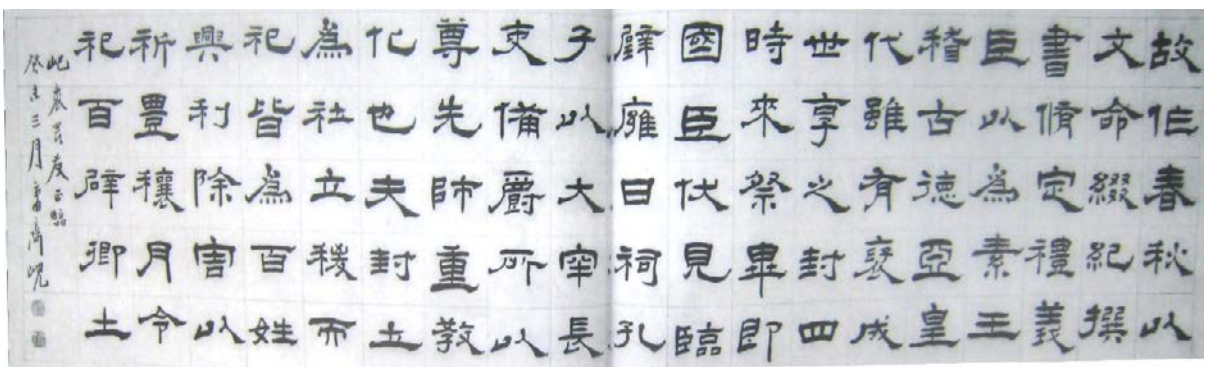 故作春秋以
文命綴紀撰
書脩定禮義
臣以爲素王
稽古德亞皇
代雖有褒成
世享之封四
時來祭畢即
國臣伏見臨
璧廱日祠孔
子以大宰長
吏備爵所以
尊先師重教
化也夫封土
爲社立稷而
祀皆爲百姓
興利除害以
祈豐穰月令
祀百辟卿士
友正臨
癸未三月濟